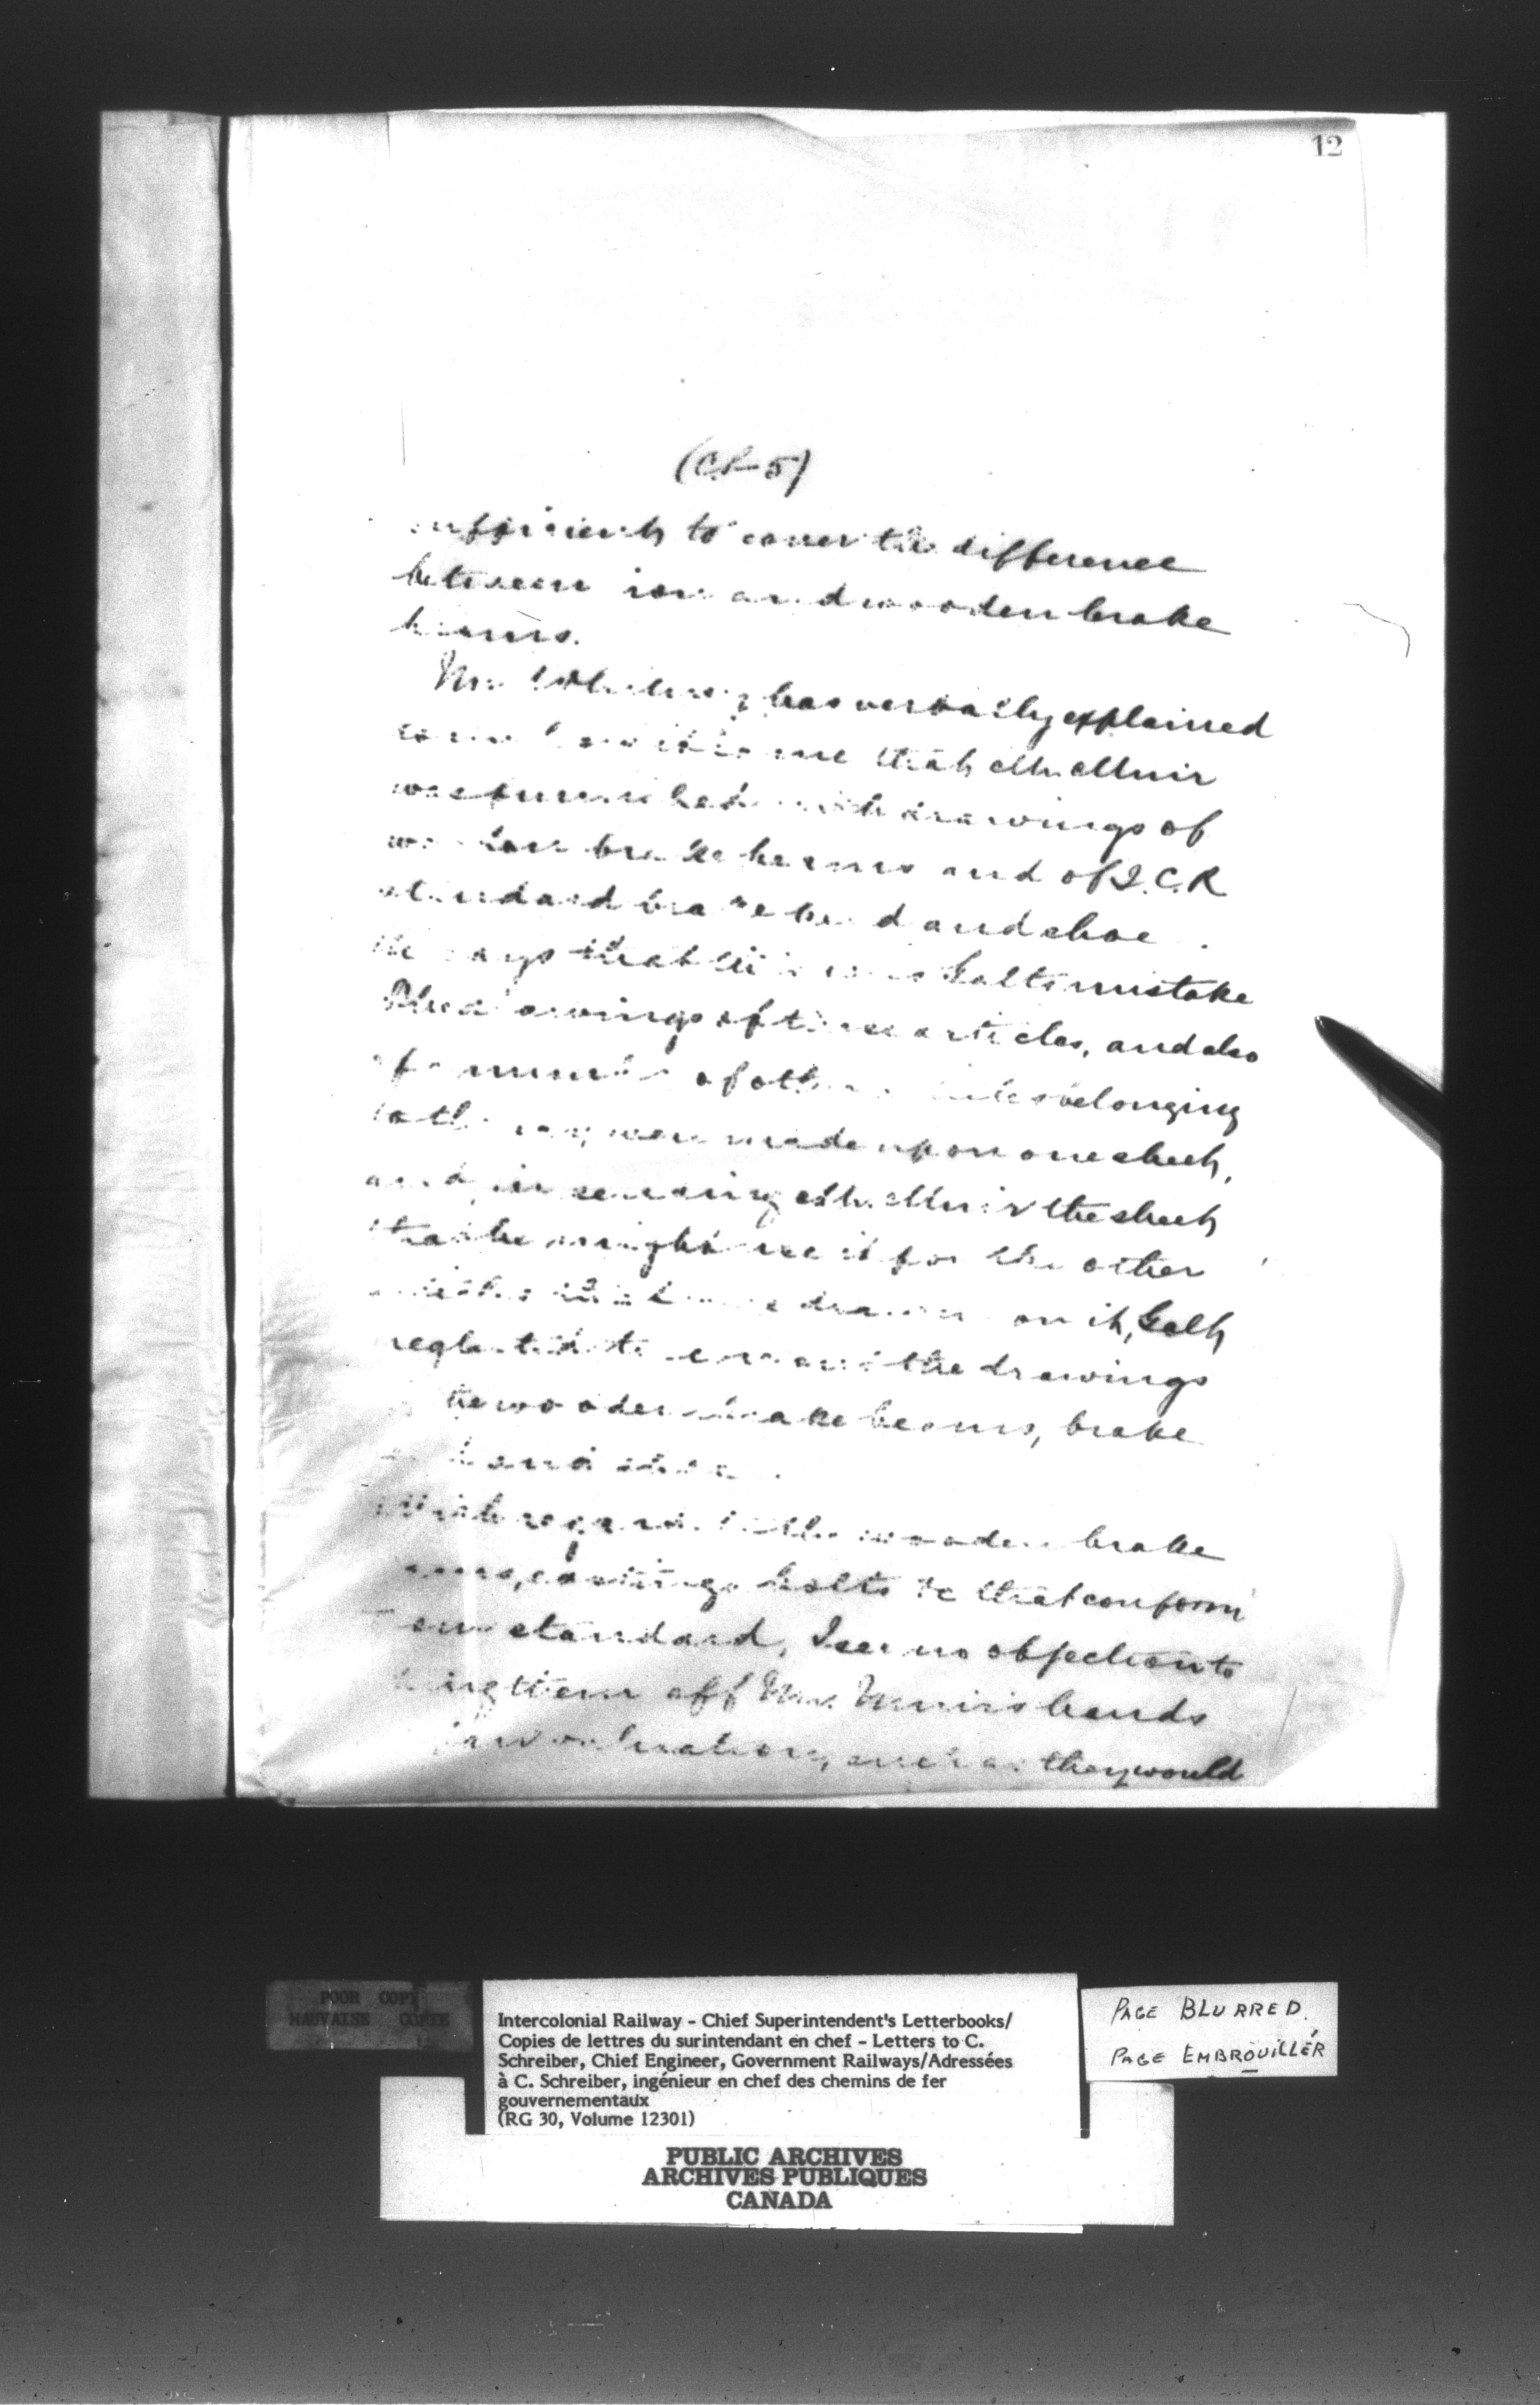 12
(C.S-5)
sufficient to cover the difference
between iron and wooden brake
beams.
Mr has verbally explained
to me that Mr Muir
was furnished with drawings of
wooden brake beams and of I.C.R
standard brake head and shoe.
He says that this was Galts mistake
The drawings of these articles, and also
of a number of other articles belonging
to the were made upon one sheet,
and, in sending Mr. Muir the sheet
that he might use it for the other
articles that were drawn on it, Galt
neglected to the drawings
the wooden brake beams, brake
and shoe.
With regard to the wooden brake
castings bolts &c that conform
our standard, I see no objection to
them off Mr. Muir's hands
valuation, such as they would
POOR COPY
MAUVAISE COPIE
Intercolonial Railway - Chief Superintendent's Letterbooks/
Copies de lettres du surintendant en chef - Letters to C.
Schreiber, Chief Engineer, Government Railways/Adressées
à C. Schreiber, ingénieur en chef des chemins de fer
gouvernementaux
(RG 30, Volume 12301)
PAGE BLURRED.
PAGE EMBROUILLÉR
PUBLIC ARCHIVES
ARCHIVES PUBLIQUES
CANADA